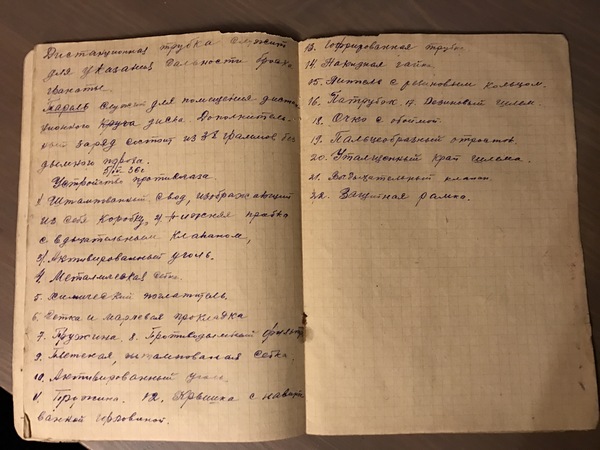 Дистанционная трубка служит
для указания дальности броска
гранаты.
служит для помещения дистан
ционного круга диска Дополнитель-
ный заряд состоит из 38 граммов без
дымного пороха.
5/IV 36г
Устройство противогаза.
1 Штампованный свод, изображающий
из себя коробку, 2/ нижняя пробка
с вдыхательным клапаном,
3/ Активированный уголь.
4. Металическая сетка.
5. химический поглатитель.
6. Сетка и марлевая прокладка
7. Пружина. 8. Противодымный фильтр
9. штампованая сетка.
10. Активированный уголь
11. Пружина. 12. Крышка с навин
13. Гофрированная трубка
14. Накидная гайка
15. Ниппель с резиновым кольцом.
16. Патрубок. 17. Резиновый шлем.
18. Очко с обоймой.
19. Пальцеобразный отросток.
20. Утолщенный край шлема.
21. Выдыхательный клапан.
22. Защитная рамка.